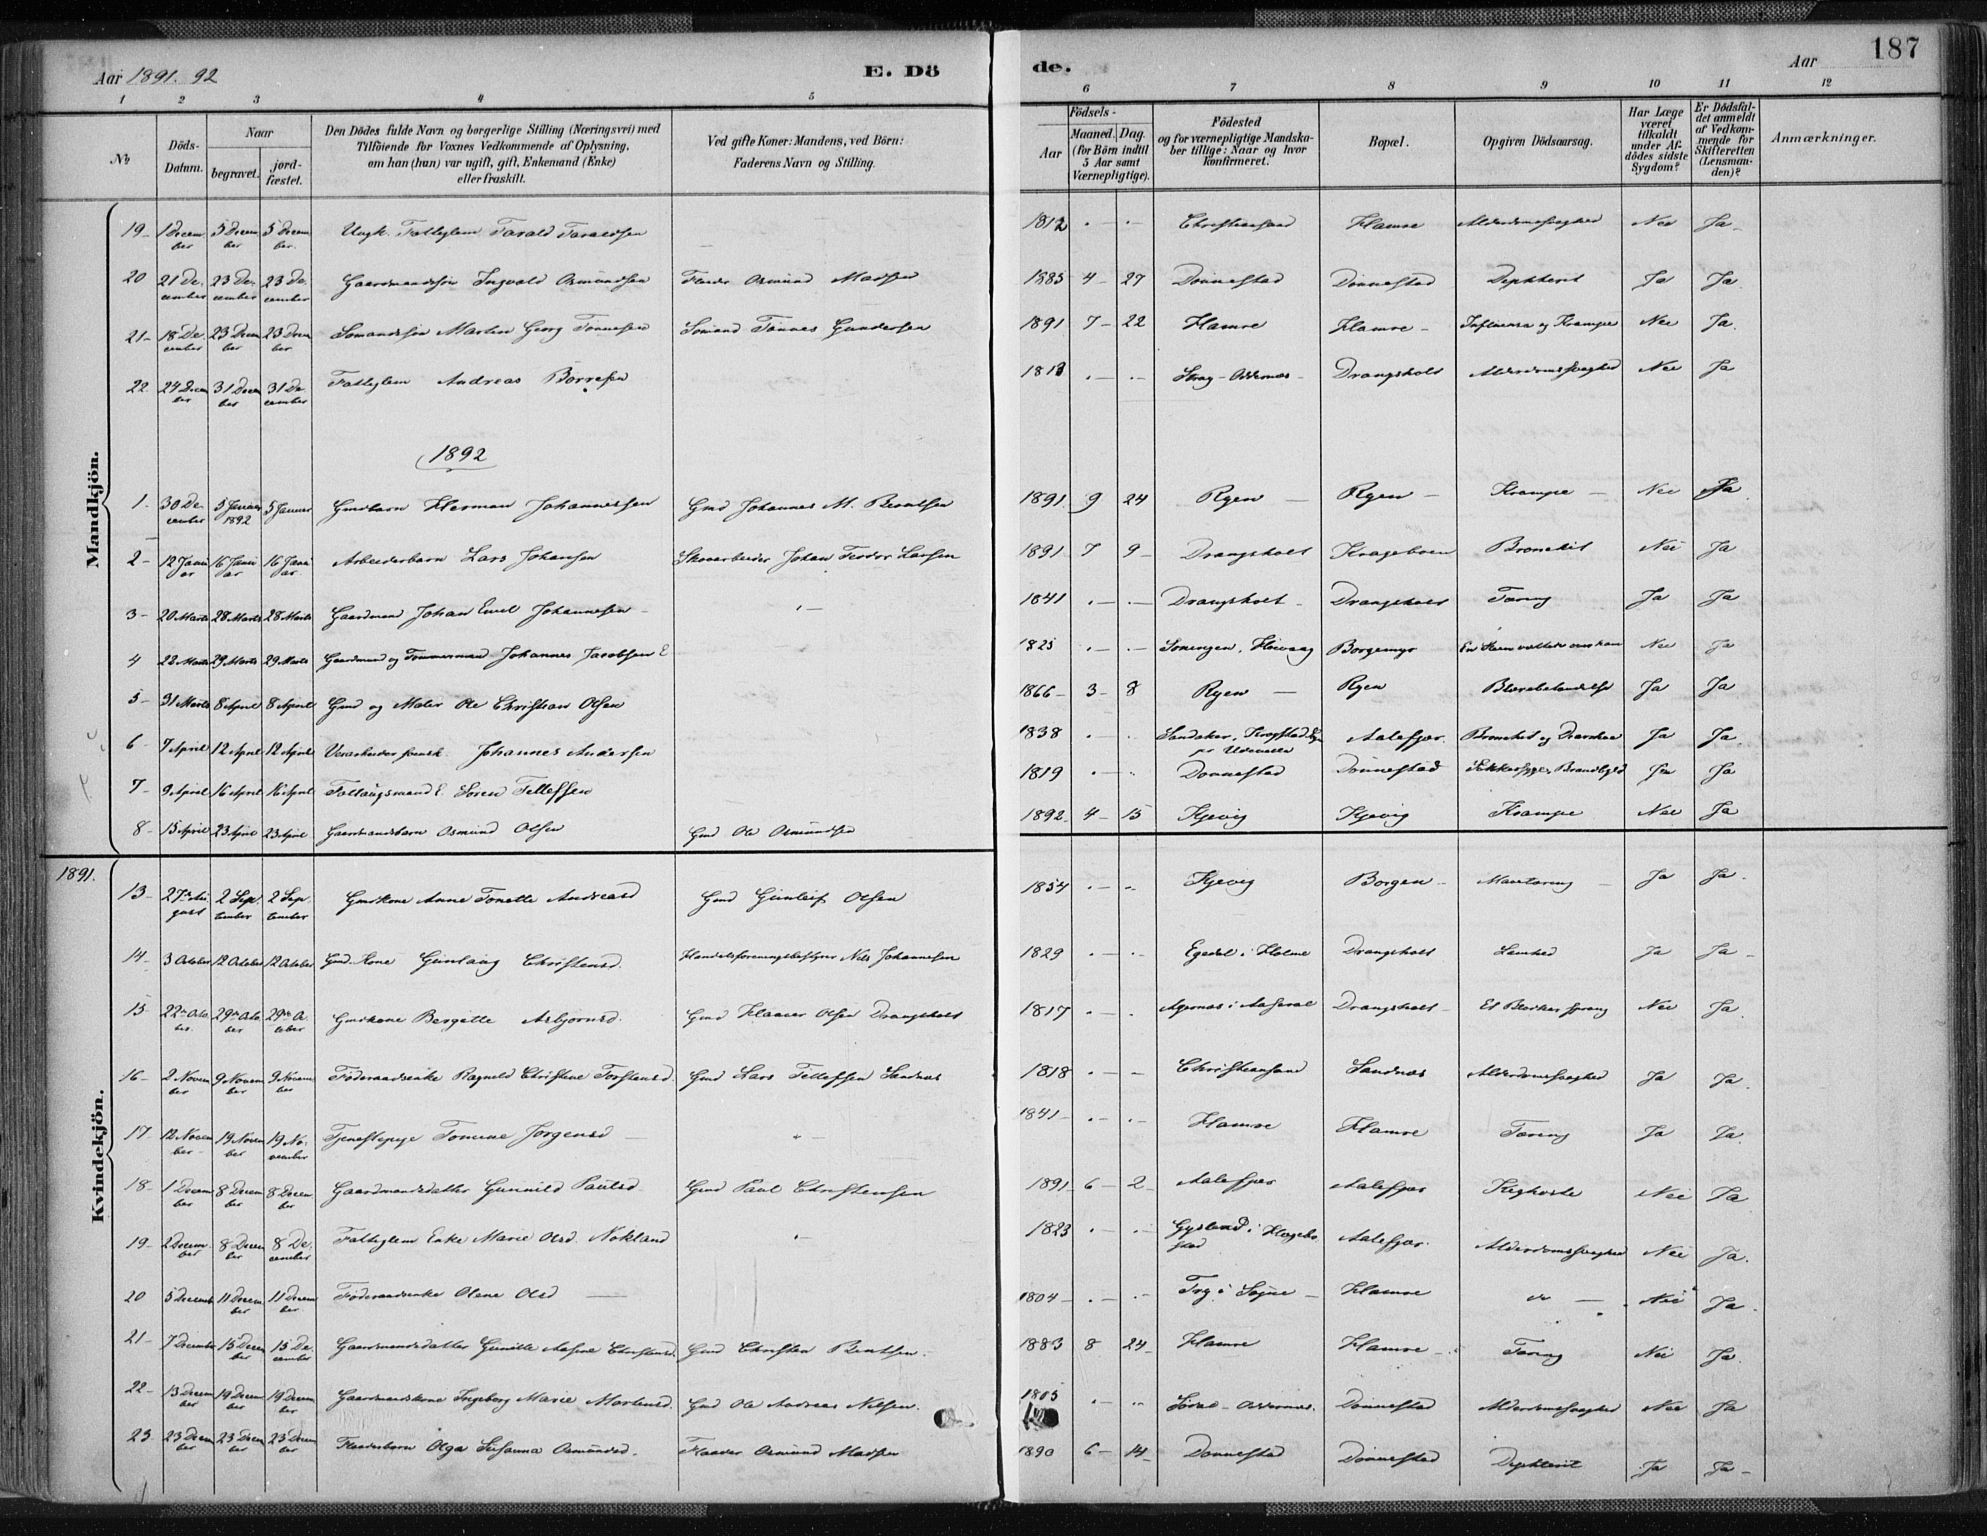 187
Aar 1891. 92 E. Dö de. Aar
1 2 3 4 5 6 7 8 9 10 11 12
No
Döds-Datum.
Naar
begravet.
jord-fæstet.
Den Dödes fulde Navn og borgerlige Stilling (Næringsvei) med
Tilföiende for Voxnes Vedkommende af Oplysning,
om han (hun) var ugift, gift, Enkemand (Enke)
eller fraskilt.
Ved gifte Koner: Mandens, ved Börn:
Faderens Navn og Stilling.
Födsels-
Aar
Maaned. Dag.
(for Börn indtil
5 Aar samt
Værnepligtige).
Födested
og for værnepligtige Mandska-
ber tillige: Naar og hvor
konfirmeret.
Bopæl.
Opgiven Dödsaarsag.
Har Læge
været
tilkaldt
under Af-
dödes sidste
Sygdom?
Er Dödsfal-
det anmeldt
af Vedkom-
mende for
Skifteretten
(Lensman-
den)?
Anmærkninger.
Mandkjön.
19 1 December 5 December 5 December Ungk. Fattiglem Tarald Taraldsen 1812 Christianssand Hamre Alderdomssvaghed Nei Ja
20 21 December 23 December 23 December Gaardmandssön Ingvald Osmundsen Osmund Madsen 1885 4 27 Dönnestad Dönnestad Ja Ja
21 18 December 23 December 23 December Sömandssön Martin Georg Tönnesen Sömand Tönnes Gundersen 1891 7 22 Hamre Hamre Influensa og Krampe Nei Ja
22 24 December 31 December 31 December Fattiglem Andreas Börresen Oddernes Drangsholt Alderdomssvaghed Nei Ja
1892
1 30 December 5 Januar 1892 5 Januar Gmdbarn Herman Johannessen Gmd Johannes M. Berntsen 1891 9 24 Ryen Ryen Krampe Nei Ja
2 12 Januar 16 Januar 16 Januar Arbeiderbarn Lars Johansen Johan Teodor Larsen 1891 7 9 Drangsholt Krageboen Bronchit Nei Ja
3 20 Marts 28 Marts 28 Marts Gaardmand Johan Emil Johannesen 1841 Drangsholt Drangsholt Tæring Ja Ja
4 22 Marts 29 Marts 29 Marts Gaardmand og Tömmermand Johannes Jacobsen E 1825 Hövaag Borgemyr En Steen væltede over ham Nei Ja
5 31 Marts 8 April 8 April Gmd og Maler Ole Christian Olsen 1866 3 8 Ryen Ryen Ja Ja
6 7 April 12 April 12 April Johannes Andersen 1838 Aalefjær Bronchit og Ja Ja
7 9 April 16 April 16 April E. Sören Tellefsen 1819 Dönnestad Dönnestad Sukkersyge, Brandbyld Ja Ja
8 15 April 23 April 23 April Gaardmandsbarn Osmund Olsen Gmd Ole Osmundsen 1892 4 15 Kjevig Kjevig Krampe Nei Ja
1891.
Kvindekjön.
13 27 August 2 September 2 September Gmdkone Anne Tonette Andreasd Gmd Gunleif Olsen 1854 Kjevig Borgen Mavetæring Ja Ja
14 3 October 12 October 12 October Gmd. Kone Gunlaug Christensd. Handelsforeningsbestyrer Nils Johannesen 1829 Egedal i Holme Drangsholt Lamhed Ja Ja
15 22 October 29 October 29 October Gmdkone Bergitte Asbjörnsd. Gmd Haaver Olsen Drangsholt 1817 i Aaseral Drangsholt Nei Ja
16 2 November 9 November 9 November Föderaadsenke Ragnild Christine Torstensd. Gmd Lars Tellefsen Sandnæs 1818 Christianssand Sandnæs Alderdomssvaghed Ja Ja
17 12 November 19 November 19 November Tjenestepige Tomine Jörgensd 1841 Hamre Hamre Tæring Ja Ja
18 1 December 8 December 8 December Gaardmandsdatter Gunvild Paulsd Gmd Paul Christensen 1891 6 2 Aalefjær Aalefjær Kighoste Nei Ja
19 2 December 8 December 8 December Fattiglem Enke Marie Olsd. Nökland 1823 Gysland i Hægebostad Aalefjær Alderdomssvaghed Nei Ja
20 5 December 11 December 11 December Föderaadsenke Olene Olsd 1804 Try i Sögne Hamre do Nei Ja
21 7 December 15 December 15 December Gaardmandsdatter Gunille Aasine Christensd. Gmd Christen Berntsen. 1883 8 24 Hamre Hamre Tæring Nei Ja
22 13 December 19 December 19 December Gaardmandskone Ingeborg Marie Mortensd Gmd Ole Andreas Nilsen. Oddernes Dönnestad Alderdomssvaghed Nei Ja
23 23 December 23 December 23 December Olga Susanna Osmundsd. Osmund Madsen 1890 6 14 Dönnestad Dönnestad Ja Ja